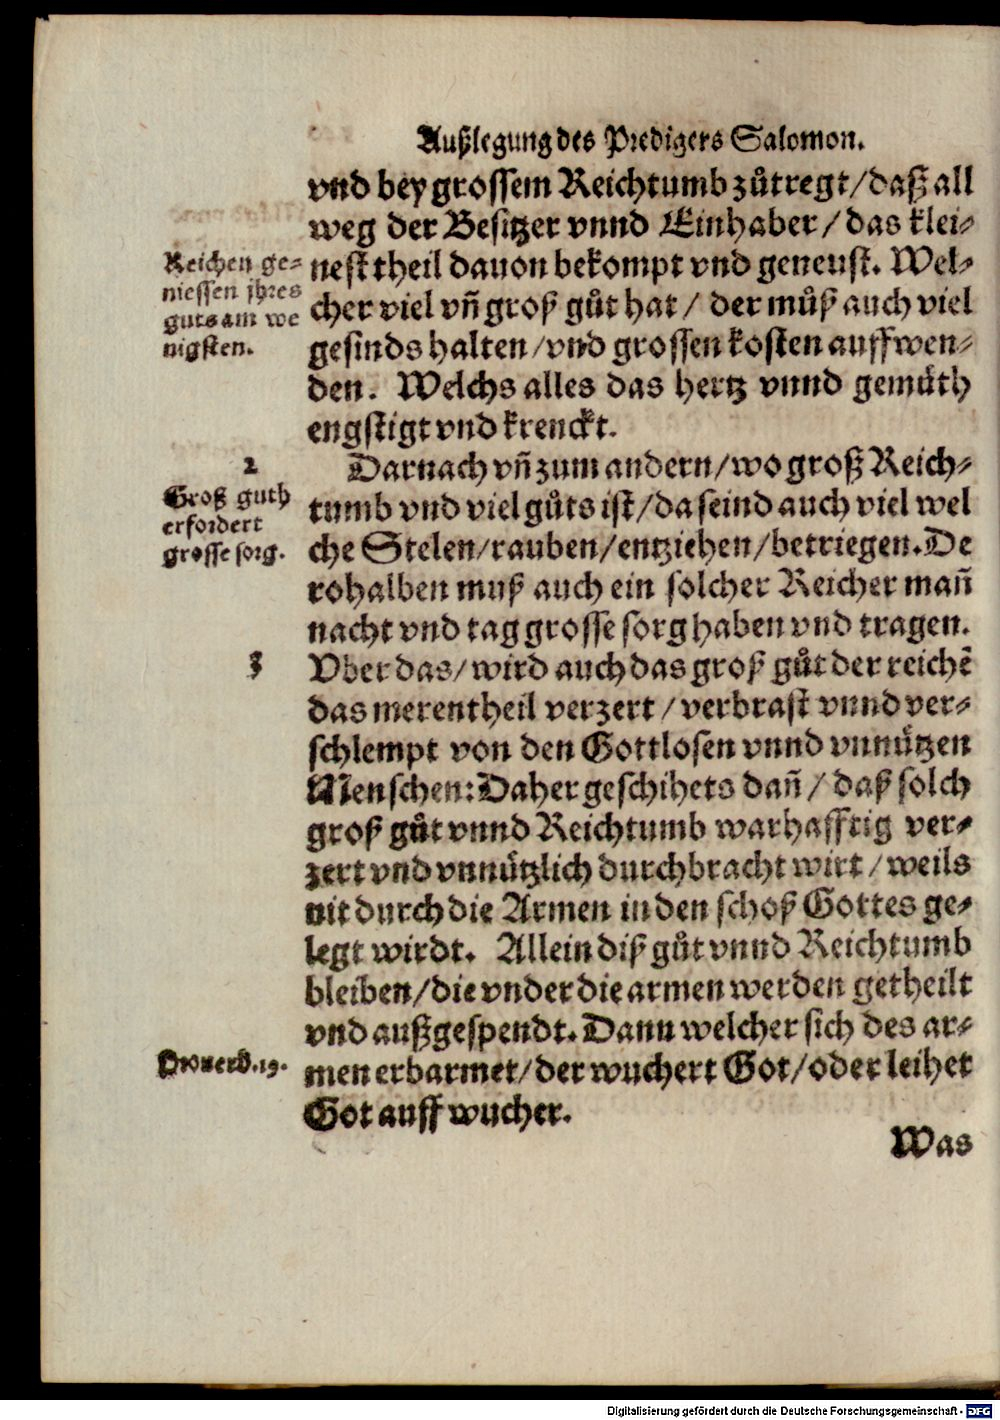 Außlegung des Predigers Salomon.
vnd bey grossem Reichtumb zůtregt/daß all
weg der Besitzer vnnd Einhaber/das klei⸗
nest theil dauon bekompt vnd geneust. Wel⸗
cher viel vñ groß gůt hat/ der můß auch viel
gesinds halten/vnd grossen kosten auffwen⸗
den. Welchs alles das hertz vnnd gemüth
engstigt vnd krenckt.
Reichen ge⸗
niessen jhres
guts am we
nigsten.
2
Darnach vñ zum andern/wo groß Reich⸗
tumb vnd viel gůts ist/da seind auch viel wel
che Stelen/rauben/entziehen/betriegen. De
rohalben muß auch ein solcher Reicher mañ
nacht vnd tag grosse sorg haben vnd tragen.
Groß guth
erfordert
grosse sorg.
3
Vber das/wird auch das groß gůt der reichẽ
das merentheil verzert/verbrast vnnd ver⸗
schlempt von den Gottlosen vnnd vnnützen
Menschen: Daher geschihets dañ/ daß solch
groß gůt vnnd Reichtumb warhafftig ver⸗
zert vnd vnnützlich durchbracht wirt/weils
nit durch die Armen in den schoß Gottes ge⸗
legt wirdt. Allein diß gůt vnnd Reichtumb
bleiben/die vnder die armen werden getheilt
vnd außgespendt. Dann welcher sich des ar⸗
men erbarmet/der wuchert Got/oder leihet
Got auff wucher.
Prouerb.19.
Was
Digitalisierung gefördert durch die Deutsche Forschungsgemeinschaft - DFG